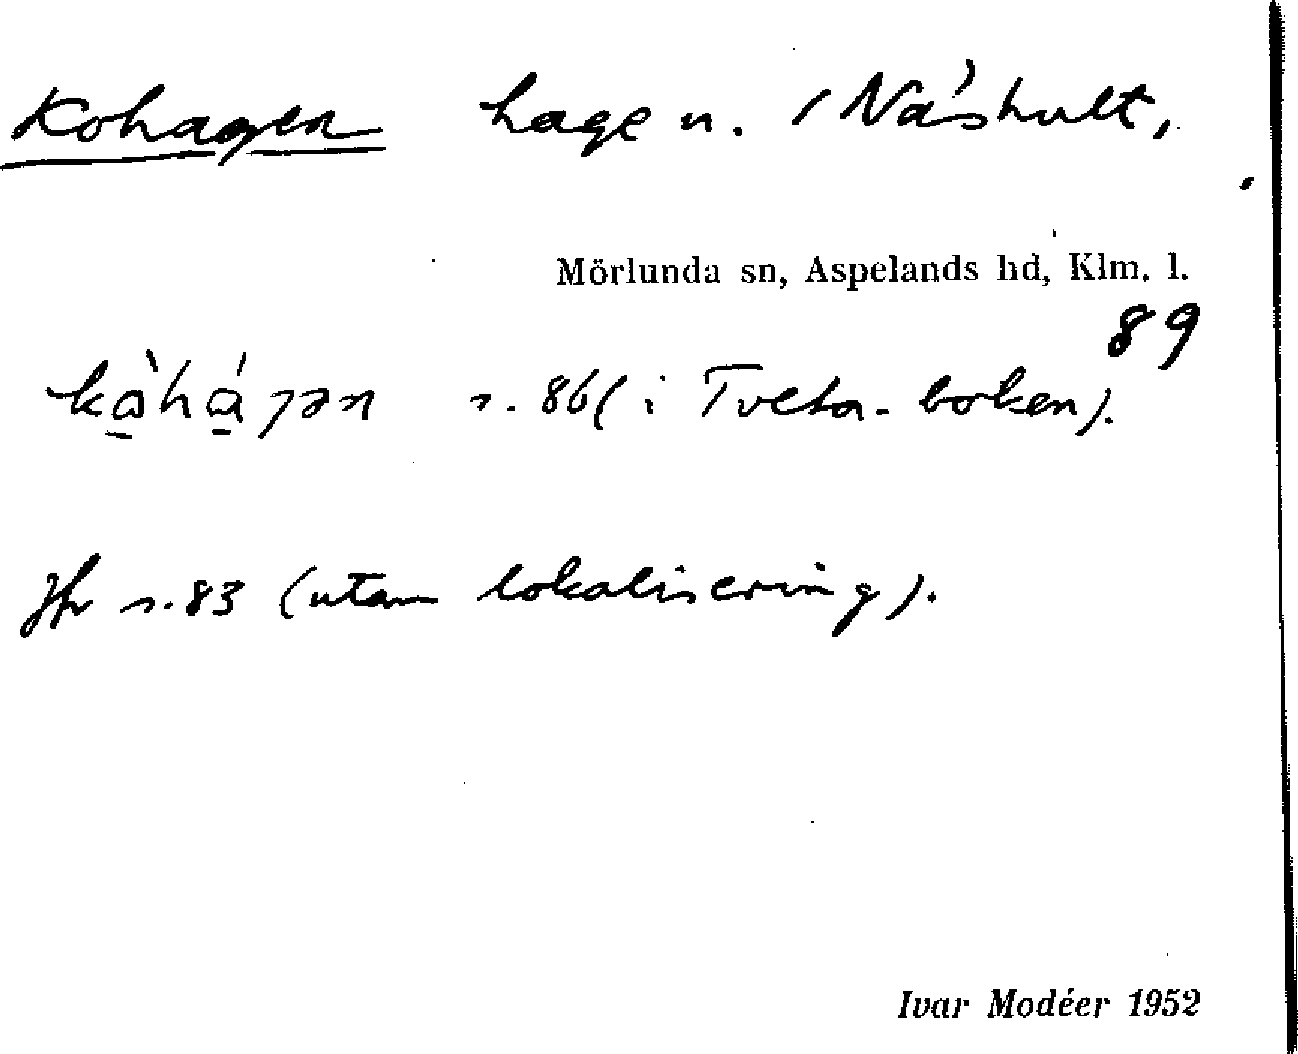 Kohagen hage n. i Näshult,
Mörlunda sn, Aspelands hd, Klm. l.
89
s. 86 (i Tveta-boken).
Jfr s. 83 (utan lokalisering).
Ivar Modéer 1952